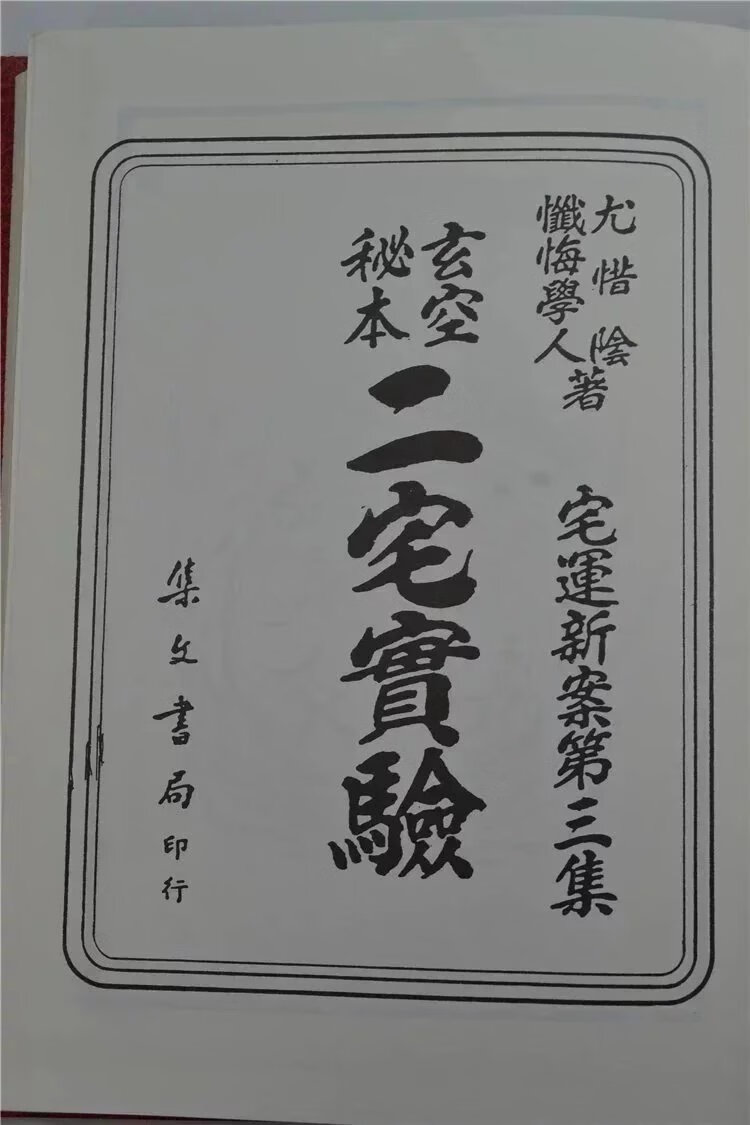 尤惜陰
懺悔學人著
宅運新案第三集
玄空
秘本
二宅實驗
集文書局印行